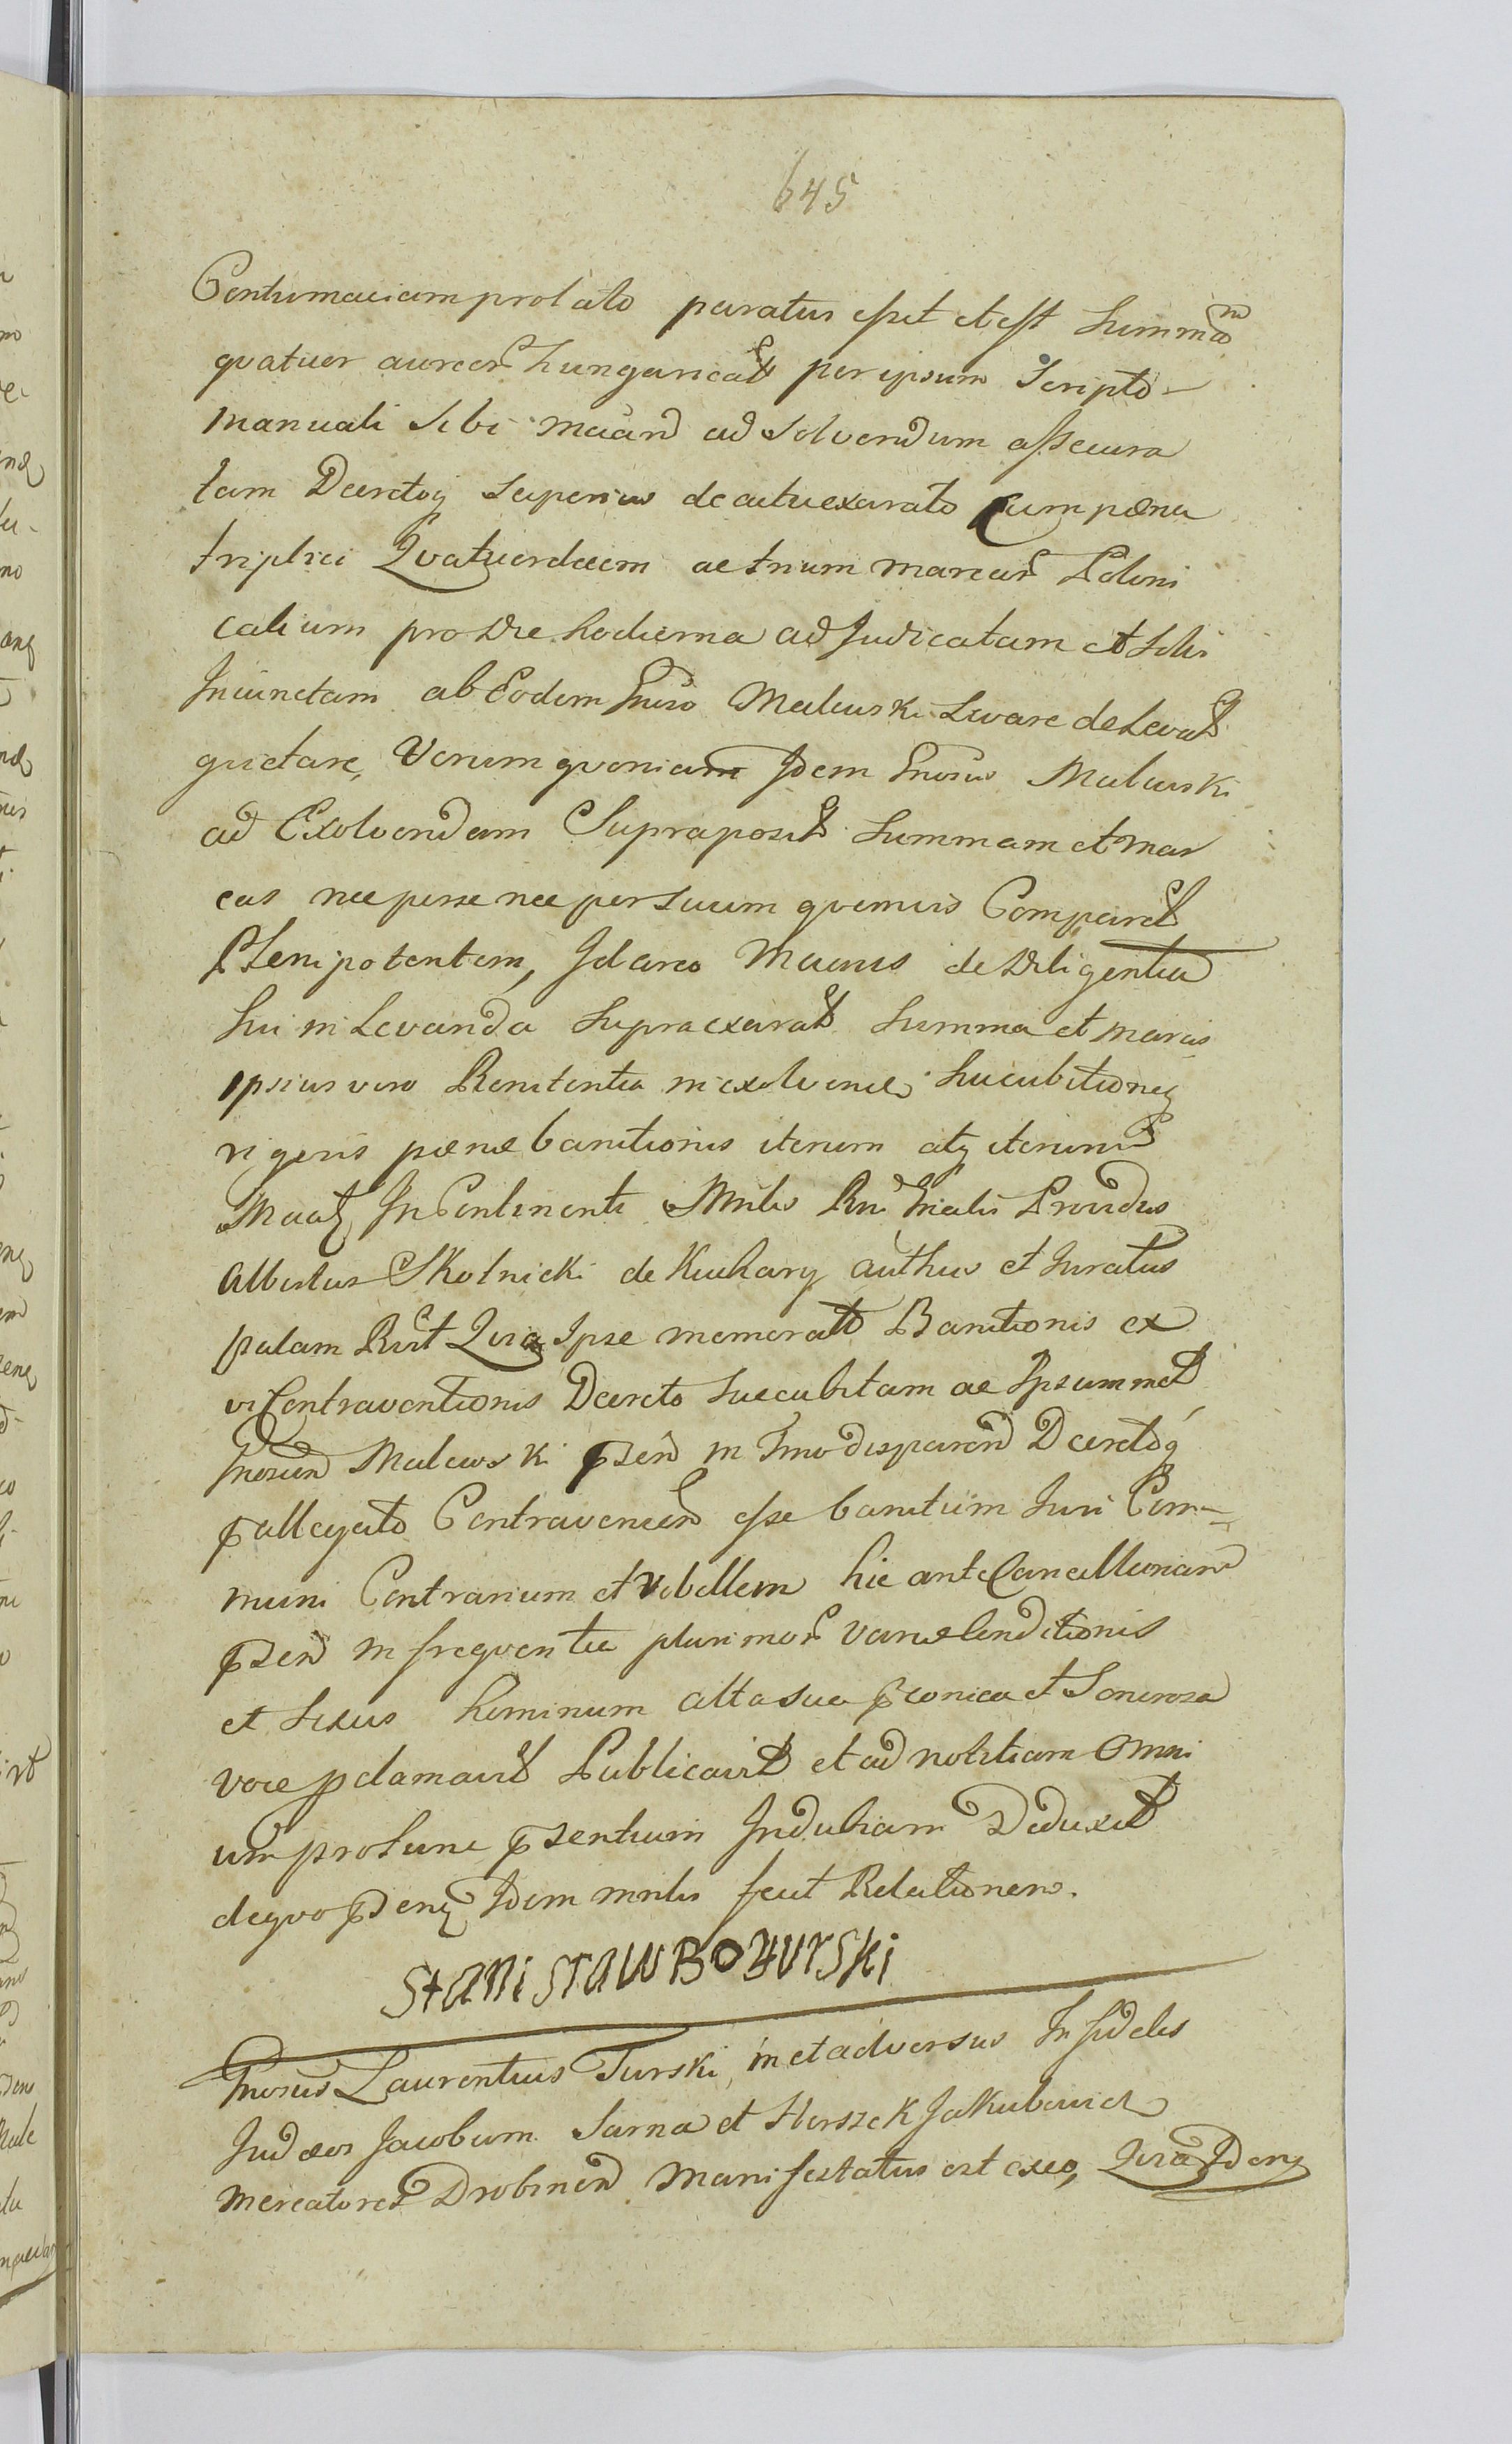 645
Contumaciam prolato paratus esset et est Summam
quatuor aureor hungarical per ipsum Scripto
manuali sibi ad Solvendum assecura
tam Decretoq superius de actu exarato cum pœna
triplici Quatuordecim ac trium marcar Poloni
calium pro die hodierna adjudicatam et solvi
Iniunctam ab Eodem Gnoso Malewski Levare de Levat
quietare, Verum quoniam Idem Gnosus Malewski
ad Exolvendam Supraposit Summam et mar
cas nec per se nec per suum quemvis Comparet
Plenipotentem, Idcirco de Diligentia
sui in Levanda supraexarat Summa et marcis
ipsius vero Renitentia in exolvend Sucubitioneq
rigoris pœnæ banitionis iterum atq iterum
In Continenti Mnlis Rni Gnalis Providus
Albertus Skolnicki de Kuchary auth et Juratus
palam Rvit Quia Ipse memorato Banitionis ex
vi Contraventionis Decreto succubitam ac Ipsummet
Gnosum Malewski pzen in Tmo disparen Decretoq
pallegato Contravenien esse banitum Juri Com-
muni Contrarium et rebellem hic ante Cancelleriam
pzen in frequentia plurimor variæ Conditionis
et Sexus hominum alta sua pconica et Sonorosa
voce pclamavit Publicavit et ad notitiam Omni
um protunc pzentium Indubiam Deduxit
dequo pdeng Idem mnlis fecit Relationem.
Stanisław Bożurski
Gnosus Laurentius Turski, in et adversus Infideles
Judæos Jacobum Sarna et Herszek Jakubowicz
mercatores Drobinen Manifestatus est eo, Quia Pdeng